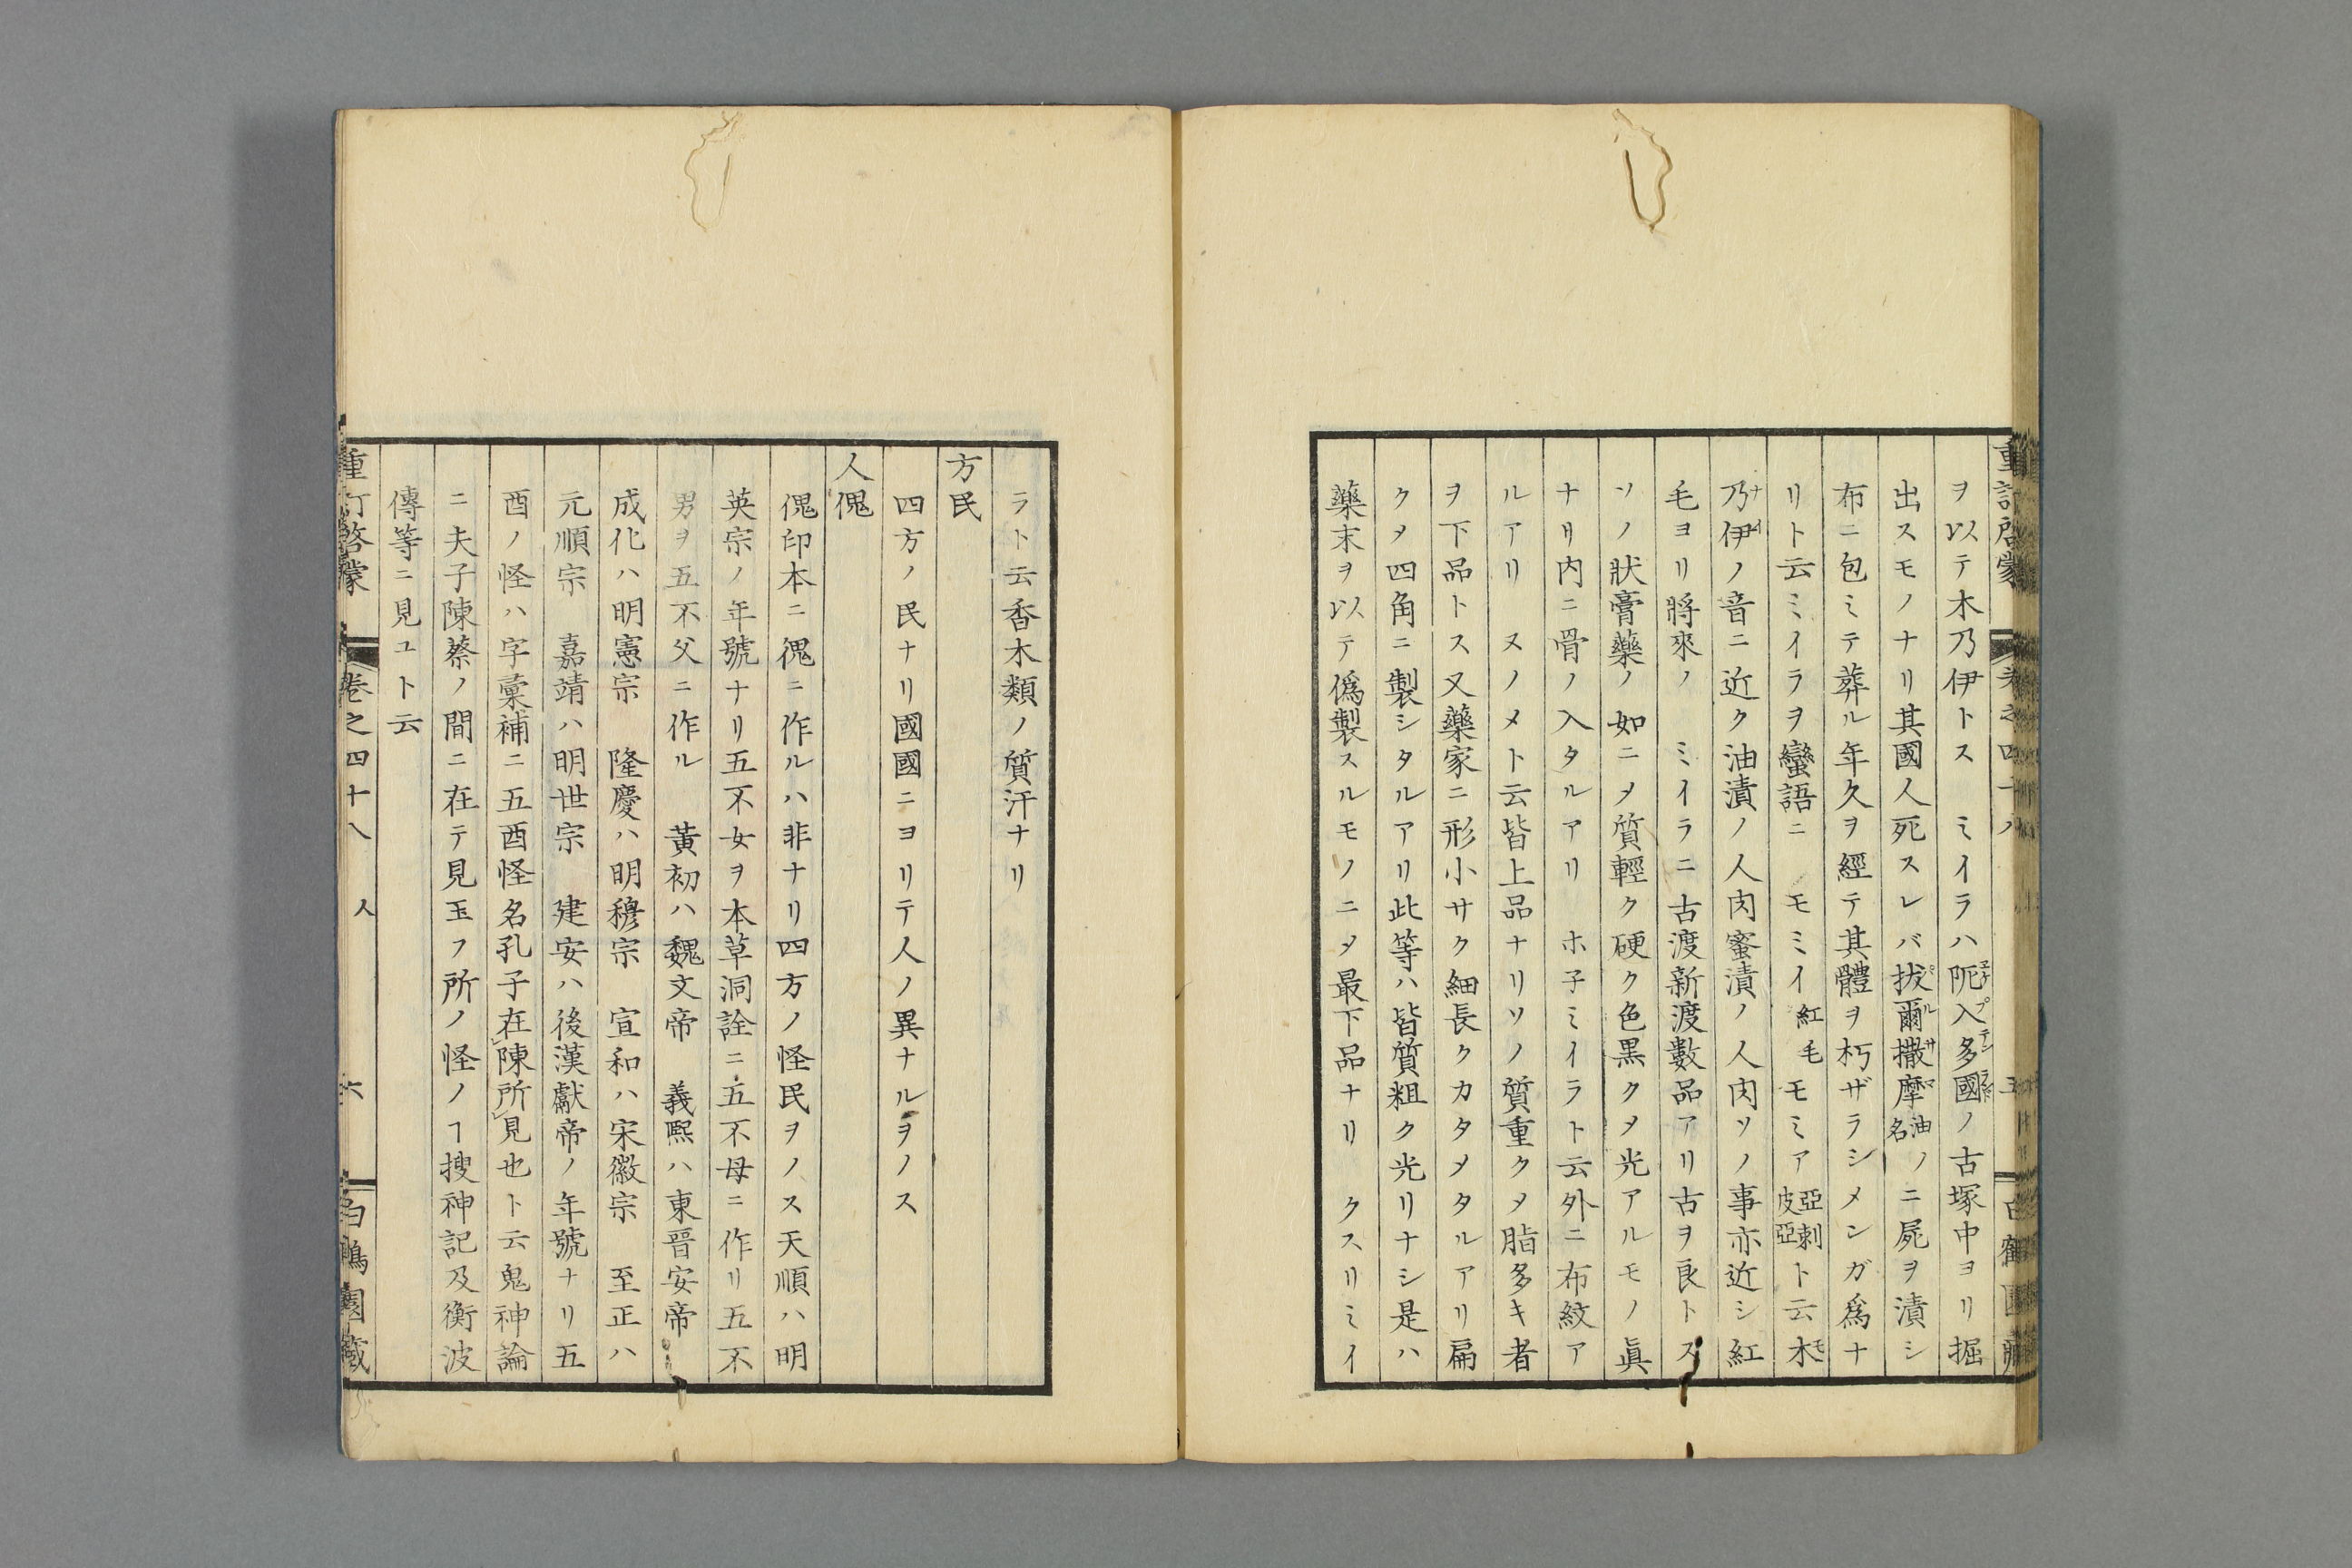 重訂啓蒙 卷之四十八 五 白鶴園藏
ヲ以テ木乃伊トス ミイラハ阨入多國ノ古塚中ヨリ掘
出スモノナリ其國人死スレバ拔爾撒摩油名ノニ屍ヲ漬シ
布ニ包ミテ葬ル年久ヲ經テ其體ヲ朽ザラシメンガ爲ナ
リト云ミイラヲ蠻語ニ モミイ紅毛 モミア亞剌皮亞ト云木
乃伊ノ音ニ近ク油漬ノ人肉蜜漬ノ人肉ソノ事亦近シ紅
毛ヨリ將來ノ ミイラニ古渡新渡數品アリ古ヲ良トス
ソノ狀膏藥ノ如ニヲ質輕ク硬ク色黒クメ光アルモノ眞
ナリ内ニ骨ノ入タルアリ ホ子ミイラト云外ニ布紋ア
ルアリ ヌノメト云皆上品ナリソノ質重クメ脂多キ者
ヲ下品トス又藥家ニ形小サク細長クカタメタルアリ扁
クメ四角ニ製シタルアリ此等ハ皆質粗ク光リナシ是ハ
藥末ヲ以テ僞製スルモノニヲ最下品ナリ クスリミイ
ラト云香木類ノ質汗ナリ
方民
四方ノ民ナリ國國ニヨリテ人ノ異ナルヲノス
人傀
傀印本ニ傀ニ作ルハ非ナリ四方ノ怪民ヲノス天順ハ明
英宗ノ年號ナリ五不女ヲ本草洞詮ニ五不母ニ作リ五不
男ヲ五不父ニ作ル 黃初ハ魏文帝 義熙ハ東晉安帝
成化ハ明憲宗 隆慶ハ明穆宗 宣和ハ宋徽宗 至正ハ
元順宗 嘉靖ハ明世宗 建安ハ後漢獻帝ノ年號ナリ五
酉ノ怪ハ字彙補ニ五酉怪名孔子在陳所見也ト云鬼神論
ニ夫子陳蔡ノ間ニ在テ見玉フ所ノ怪ノヿ搜神記及衡波
傳等ニ見ユト云
重訂啓蒙 卷之四十八 人 六 白鶴園藏